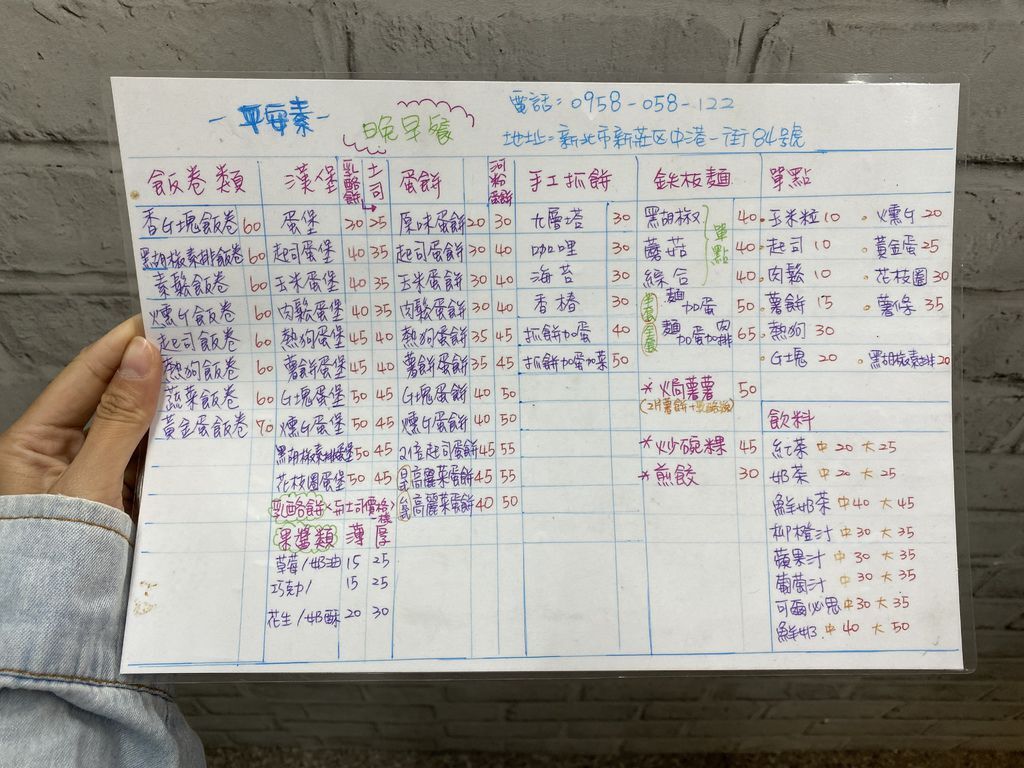 -平安素-
晚早餐
電話：0958-058-122
地址：新北市新莊区中港一街84號
飯卷類
香G塊飯卷 60
黑胡椒素排飯卷 60
素鬆飯卷 60
燻G飯卷 60
起司飯卷 60
熱狗飯卷 60
蔬菜飯卷 60
黃金蛋飯卷 70
漢堡 乳酪餅 土司
蛋堡 30 25
起司蛋堡 40 35
玉米蛋堡 40 35
肉鬆蛋堡 40 35
熱狗蛋堡 45 40
薯餅蛋堡 45 40
G塊蛋堡 50 45
燻G蛋堡 50 45
黑胡椒素排蛋堡 50 45
花枝圈蛋堡 50 45
乳酪餅×和土司價格一樣
果醬類 薄 厚
草莓/奶油 15 25
巧克力/ 15 25
花生/奶酥 20 30
蛋餅 河粉蛋餅
原味蛋餅 20 30
起司蛋餅 30 40
玉米蛋餅 30 40
肉鬆蛋餅 30 40
熱狗蛋餅 35 45
薯餅蛋餅 35 45
G塊蛋餅 40 50
燻G蛋餅 40 50
2倍起司蛋餅 45 55
高麗菜蛋餅 45 55
高麗菜蛋餅 40 50
手工抓餅
九層塔 30
咖哩 30
海苔 30
香椿 30
抓餅加蛋 40
抓餅加蛋加菜 50
鉄板麵
黑胡椒 40
蘑菇 40
綜合 40
單點
套 麵加蛋 50
套 麵加蛋肉排 65
*焗薯薯 50
*炒碗粿 45
*煎餃 30
單點
玉米粒 10 。燻G 20
起司 10 。黃金蛋 25
肉鬆 10 。花枝圈 30
薯餅 15 。薯條 35
熱狗 30
G塊 20 。黑胡椒素排 20
飲料
紅茶 中 20 大 25
奶茶 中 20 大 25
鮮奶茶 中 40 大 45
柳橙汁 中 30 大 35
蘋果汁 中 30 大 35
葡萄汁 中 30 大 35
可爾必思 中 30 大 35
鮮奶 中 40 大 50